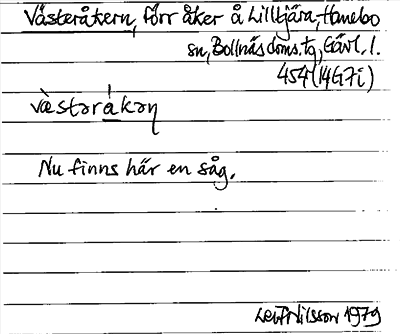 Västeråkern, förr åker å Lilltjära, Hanebo
sn, Bollnäs doms. tg, Gävl. l.
454 (14G7i)
vàstəråkəɳ
Nu finns här en såg.
Leif Nilsson 1979